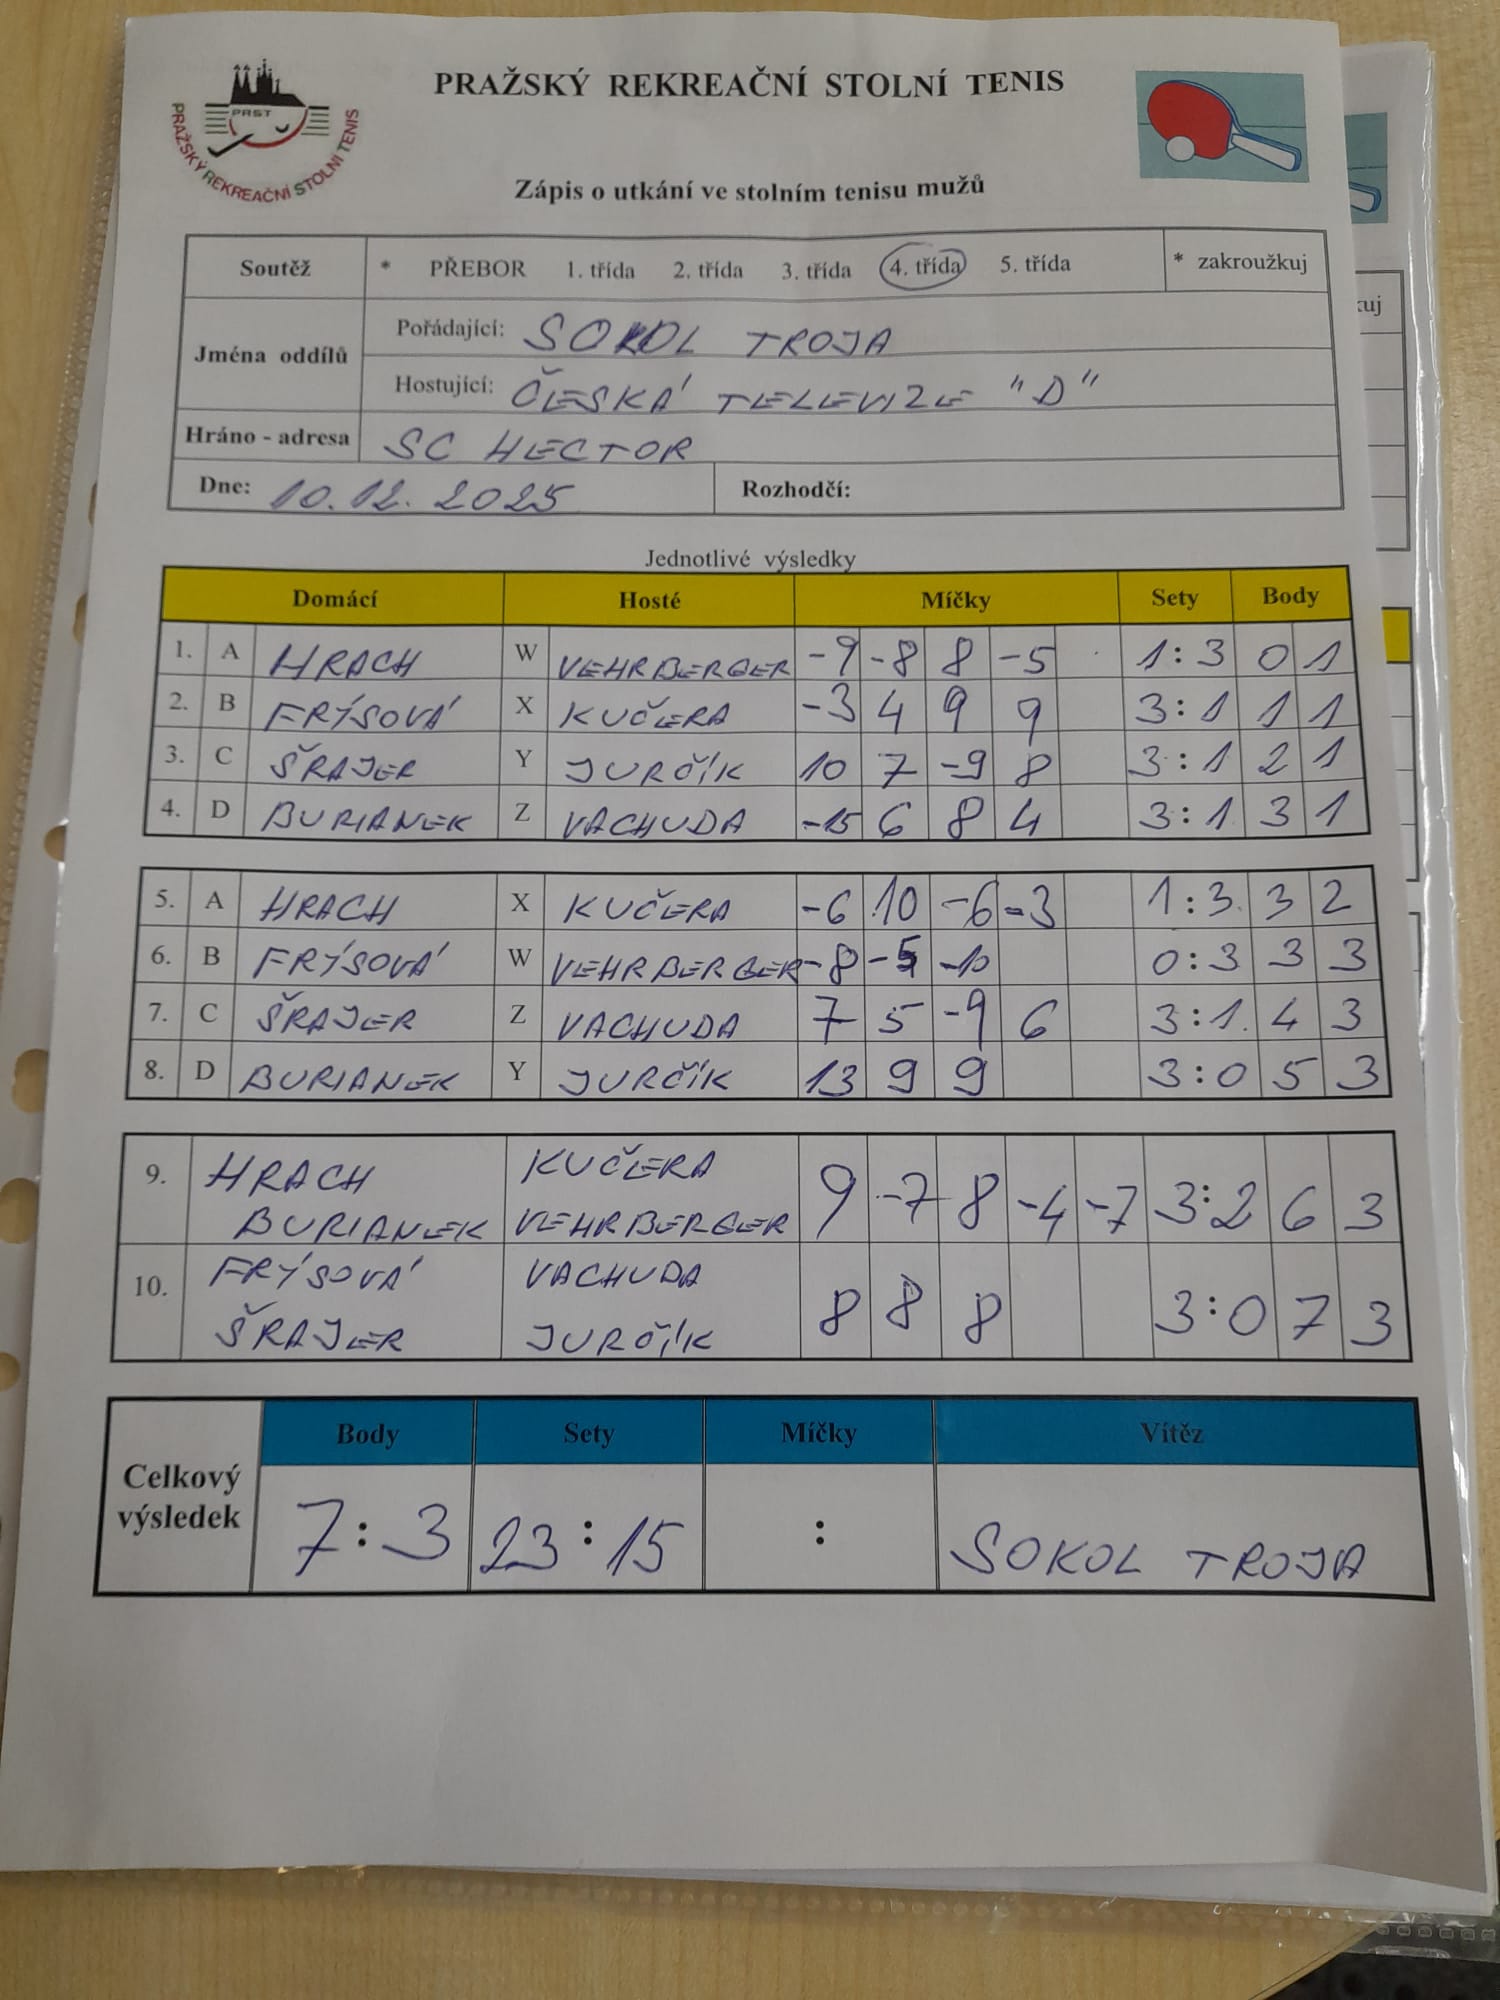 PRAŽSKÝ REKREAČNÍ STOLNÍ TENIS
PRST
PRAŽSKÝ REKREAČNÍ STOLNÍ TENIS
Zápis o utkání ve stolním tenisu mužů
Soutěž * PŘEBOR 1. třída 2. třída 3. třída 4. třída 5. třída * zakroužkuj
Jména oddílů
Pořádající: SOKOL TROJA
Hostující: ČESKÁ TELEVIZE "D"
Hráno - adresa SC HECTOR
Dne: 10.12. 2025 Rozhodčí:
Jednotlivé výsledky
Domácí Hosté Míčky Sety Body
1. A HRACH W VEHRBERGER -9 -8 8 -5 1:3 0 1
2. B FRÝSOVÁ X KUČERA -3 4 9 9 3:1 1 1
3. C ŠRAJER Y JURČÍK 10 7 -9 8 3:1 2 1
4. D BURIANEK Z VACHUDA -15 6 8 4 3:1 3 1
5. A HRACH X KUČERA -6 10 -6 -3 1:3 3 2
6. B FRÝSOVÁ W VEHRBERGER -8 -5 -10 0:3 3 3
7. C ŠRAJER Z VACHUDA 7 5 -9 6 3:1 4 3
8. D BURIANEK Y JURČÍK 13 9 9 3:0 5 3
9. HRACH KUČERA 9 -7 8 -4 -7 3:2 6 3
BURIANEK VEHRBERGER
10. FRÝSOVÁ VACHUDA 8 8 8 3:0 7 3
ŠRAJER JURČÍK
Celkový výsledek
Body Sety Míčky Vítěz
7:3 23:15 : SOKOL TROJA
kuj